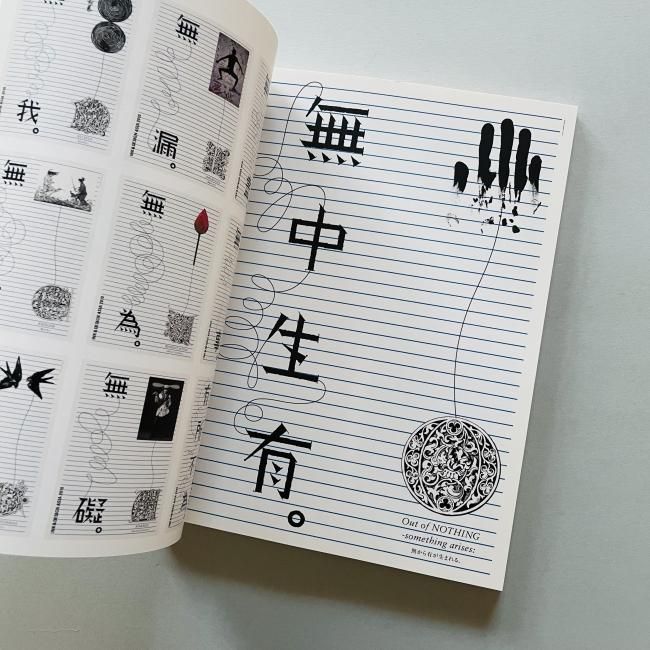 無
我。
無
漏。
無
無
為。
無
礙。
無
中
生
有。
Out of NOTHING
-something arises:
無から有が生まれる。